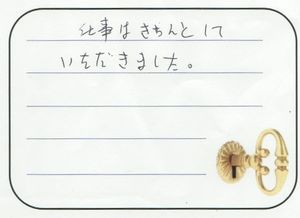 仕事はきちんとして
いただきました。